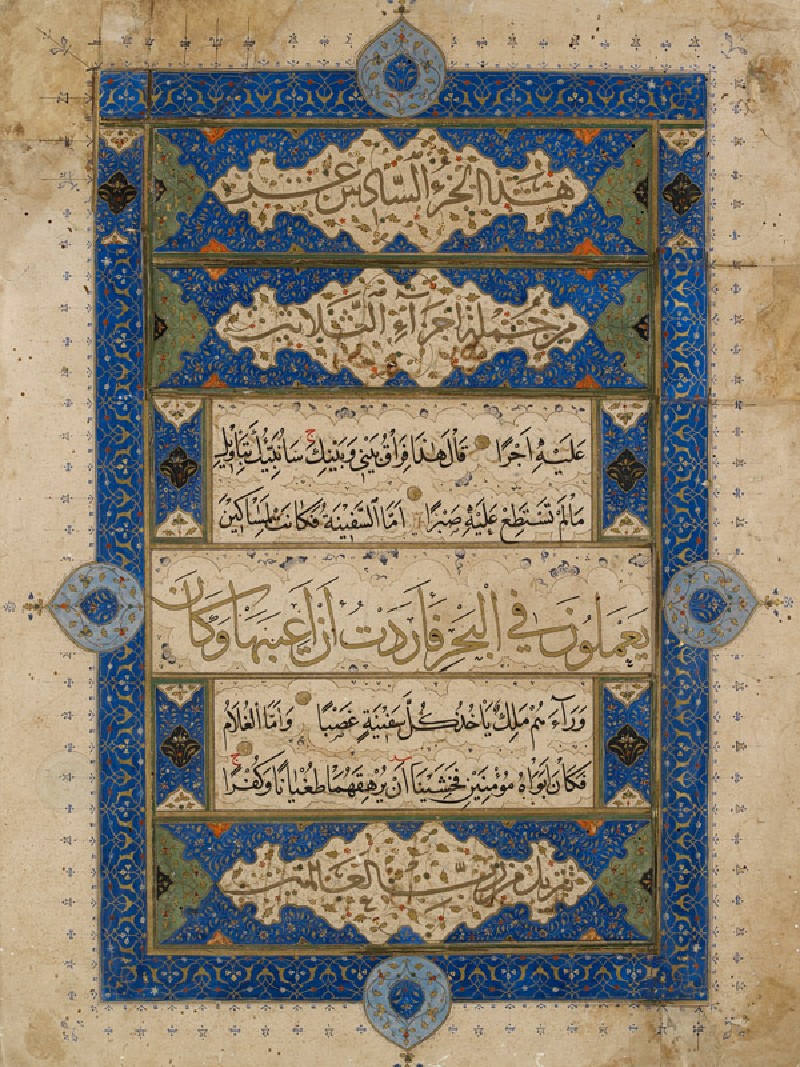 هذا الجزء السادس عشر
من جملة اجزاء الثلاثين
عَلَيْهِ اَجْرًا قَالَ هٰذَا فِرَاقُ بَيْنِي وَبَيْنِكَ سَاُنَبِّئُكَ بِتَاْوِيلِ
مَا لَمْ تَسْتَطِعْ عَلَيْهِ صَبْرًا اَمَّا السَّفِينَةُ فَكَانَتْ لِمَسَاكِينَ
يَعْمَلُونَ فِي الْبَحْرِ فَاَرَدْتُ اَنْ اَعِيبَهَا وَكَانَ
وَرَآءَهُمْ مَلِكٌ يَاْخُذُ كُلَّ سَفِينَةٍ غَصْبًا وَاَمَّا الْغُلَامُ
فَكَانَ اَبَوَاهُ مُؤْمِنَيْنِ فَخَشِينَا اَنْ يُرْهِقَهُمَا طُغْيَانًا وَكُفْرًا
تنزيل من رب العالمين